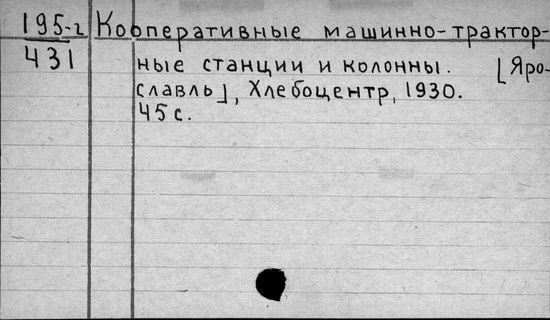 195-г Кооперативные машинно-трактор-
431
ные станции и колонны. [Яро-
славль], Хлебоцентр, 1930.
45 с.